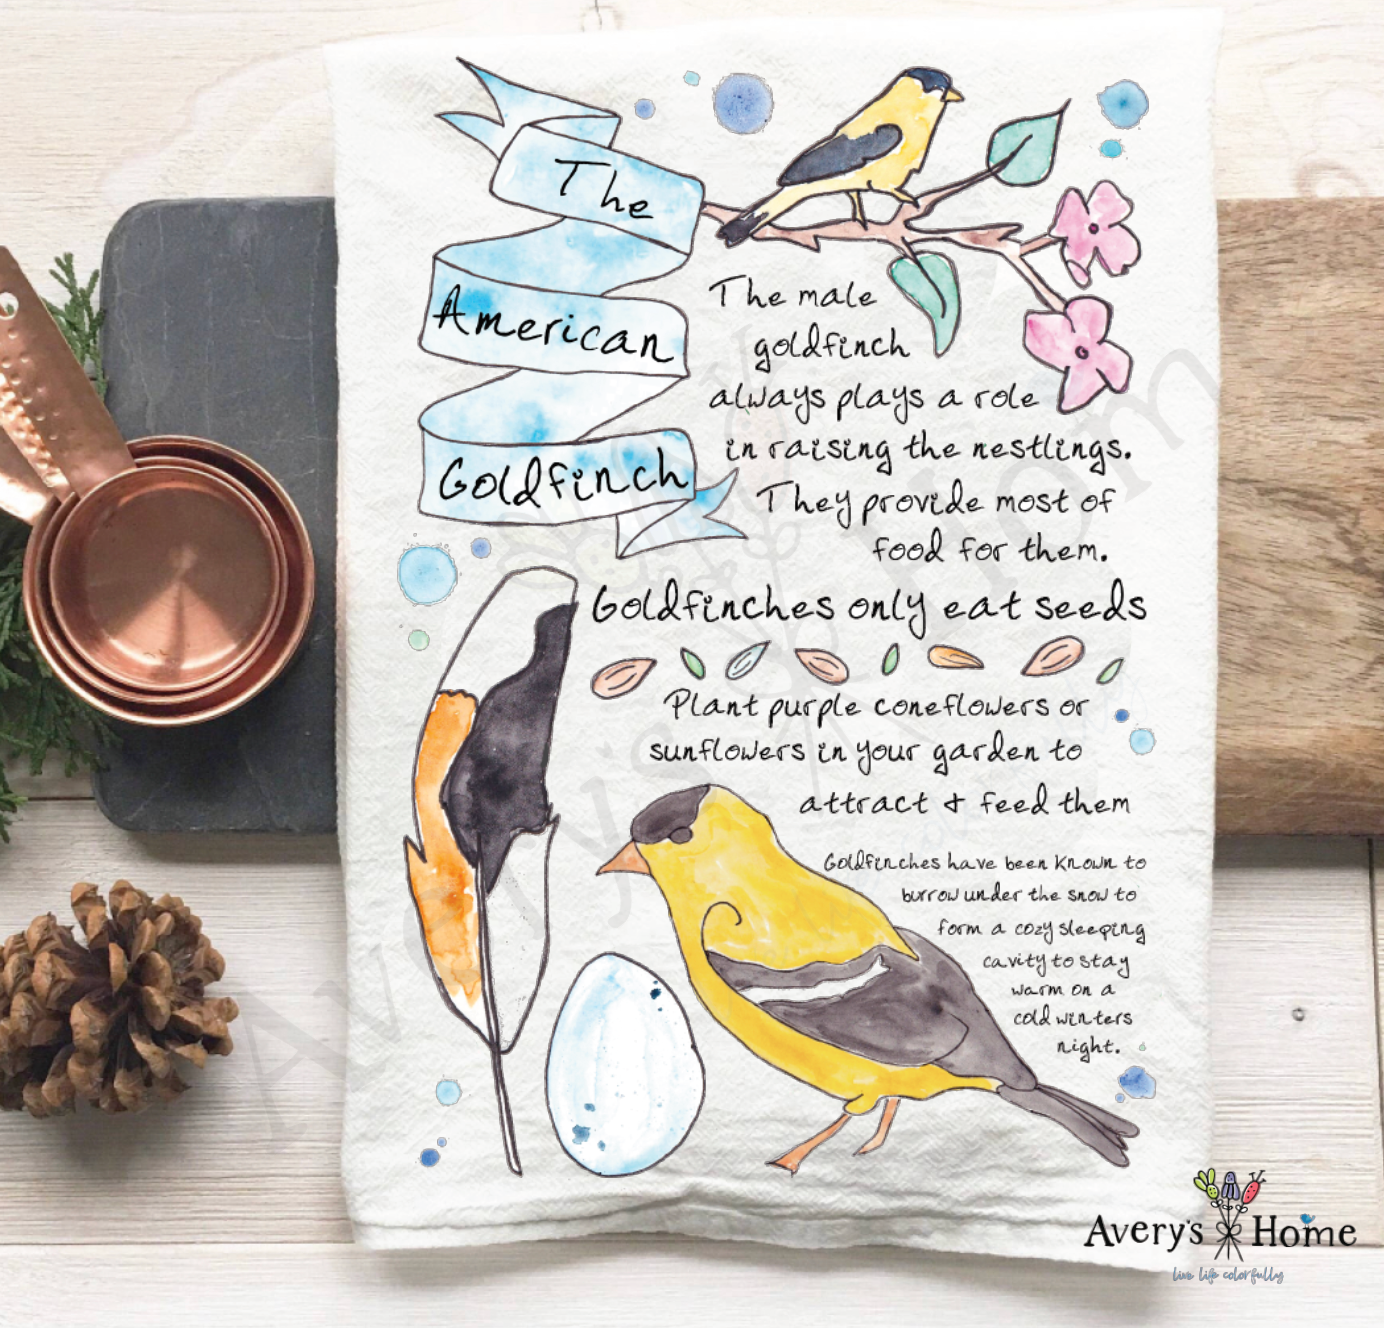 The
American
Goldfinch
The male
goldfinch
always plays a role
in raising the nestlings.
They provide most of
food for them.
Goldfinches only eat seeds
Plant purple coneflowers or
sunflowers in your garden to
attract & feed them
Goldfinches have been known to
burrow under the snow to
form a cozy sleeping
cavity to stay
warm on a
cold winters
night.
Avery's Home
Avery's Home
live life colorfully